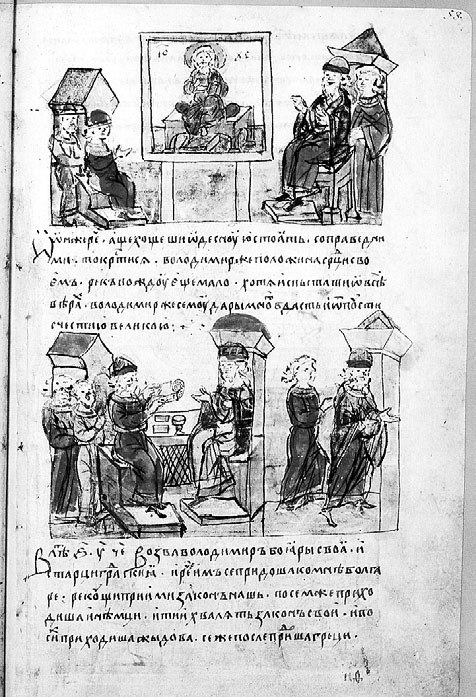 ІС ХС
Ѡн же рⷱ҇е · аще хощеши ѡдесноую стоꙗть · с праведны
ми · то крⷭ҇тисѧ · володимиръ же положи на срⷣци сво
емъ · рекъ пождоу еще мало · хотѧ испытати ѡ всѣⷯ
вѣраⷯ · володимиръ же семоу дары мноⷢ҇ вдасть и ѿпоусти
с честию великою :
В лѣⷮ · ҂ѕ҃ · у҃ч҃е · Возва володимиръ боꙗры своꙗ · и
старци градскиꙗ · и реⷱ҇ имъ се придоша ко мнѣ болга
ре · рекоуще приими законъ нашь · посем же прихо
диша и нѣмци · и тии хвалѧть законъ свои · и по
сиⷯ приидиша жыдова · се же послѣ приⷣша греци ·